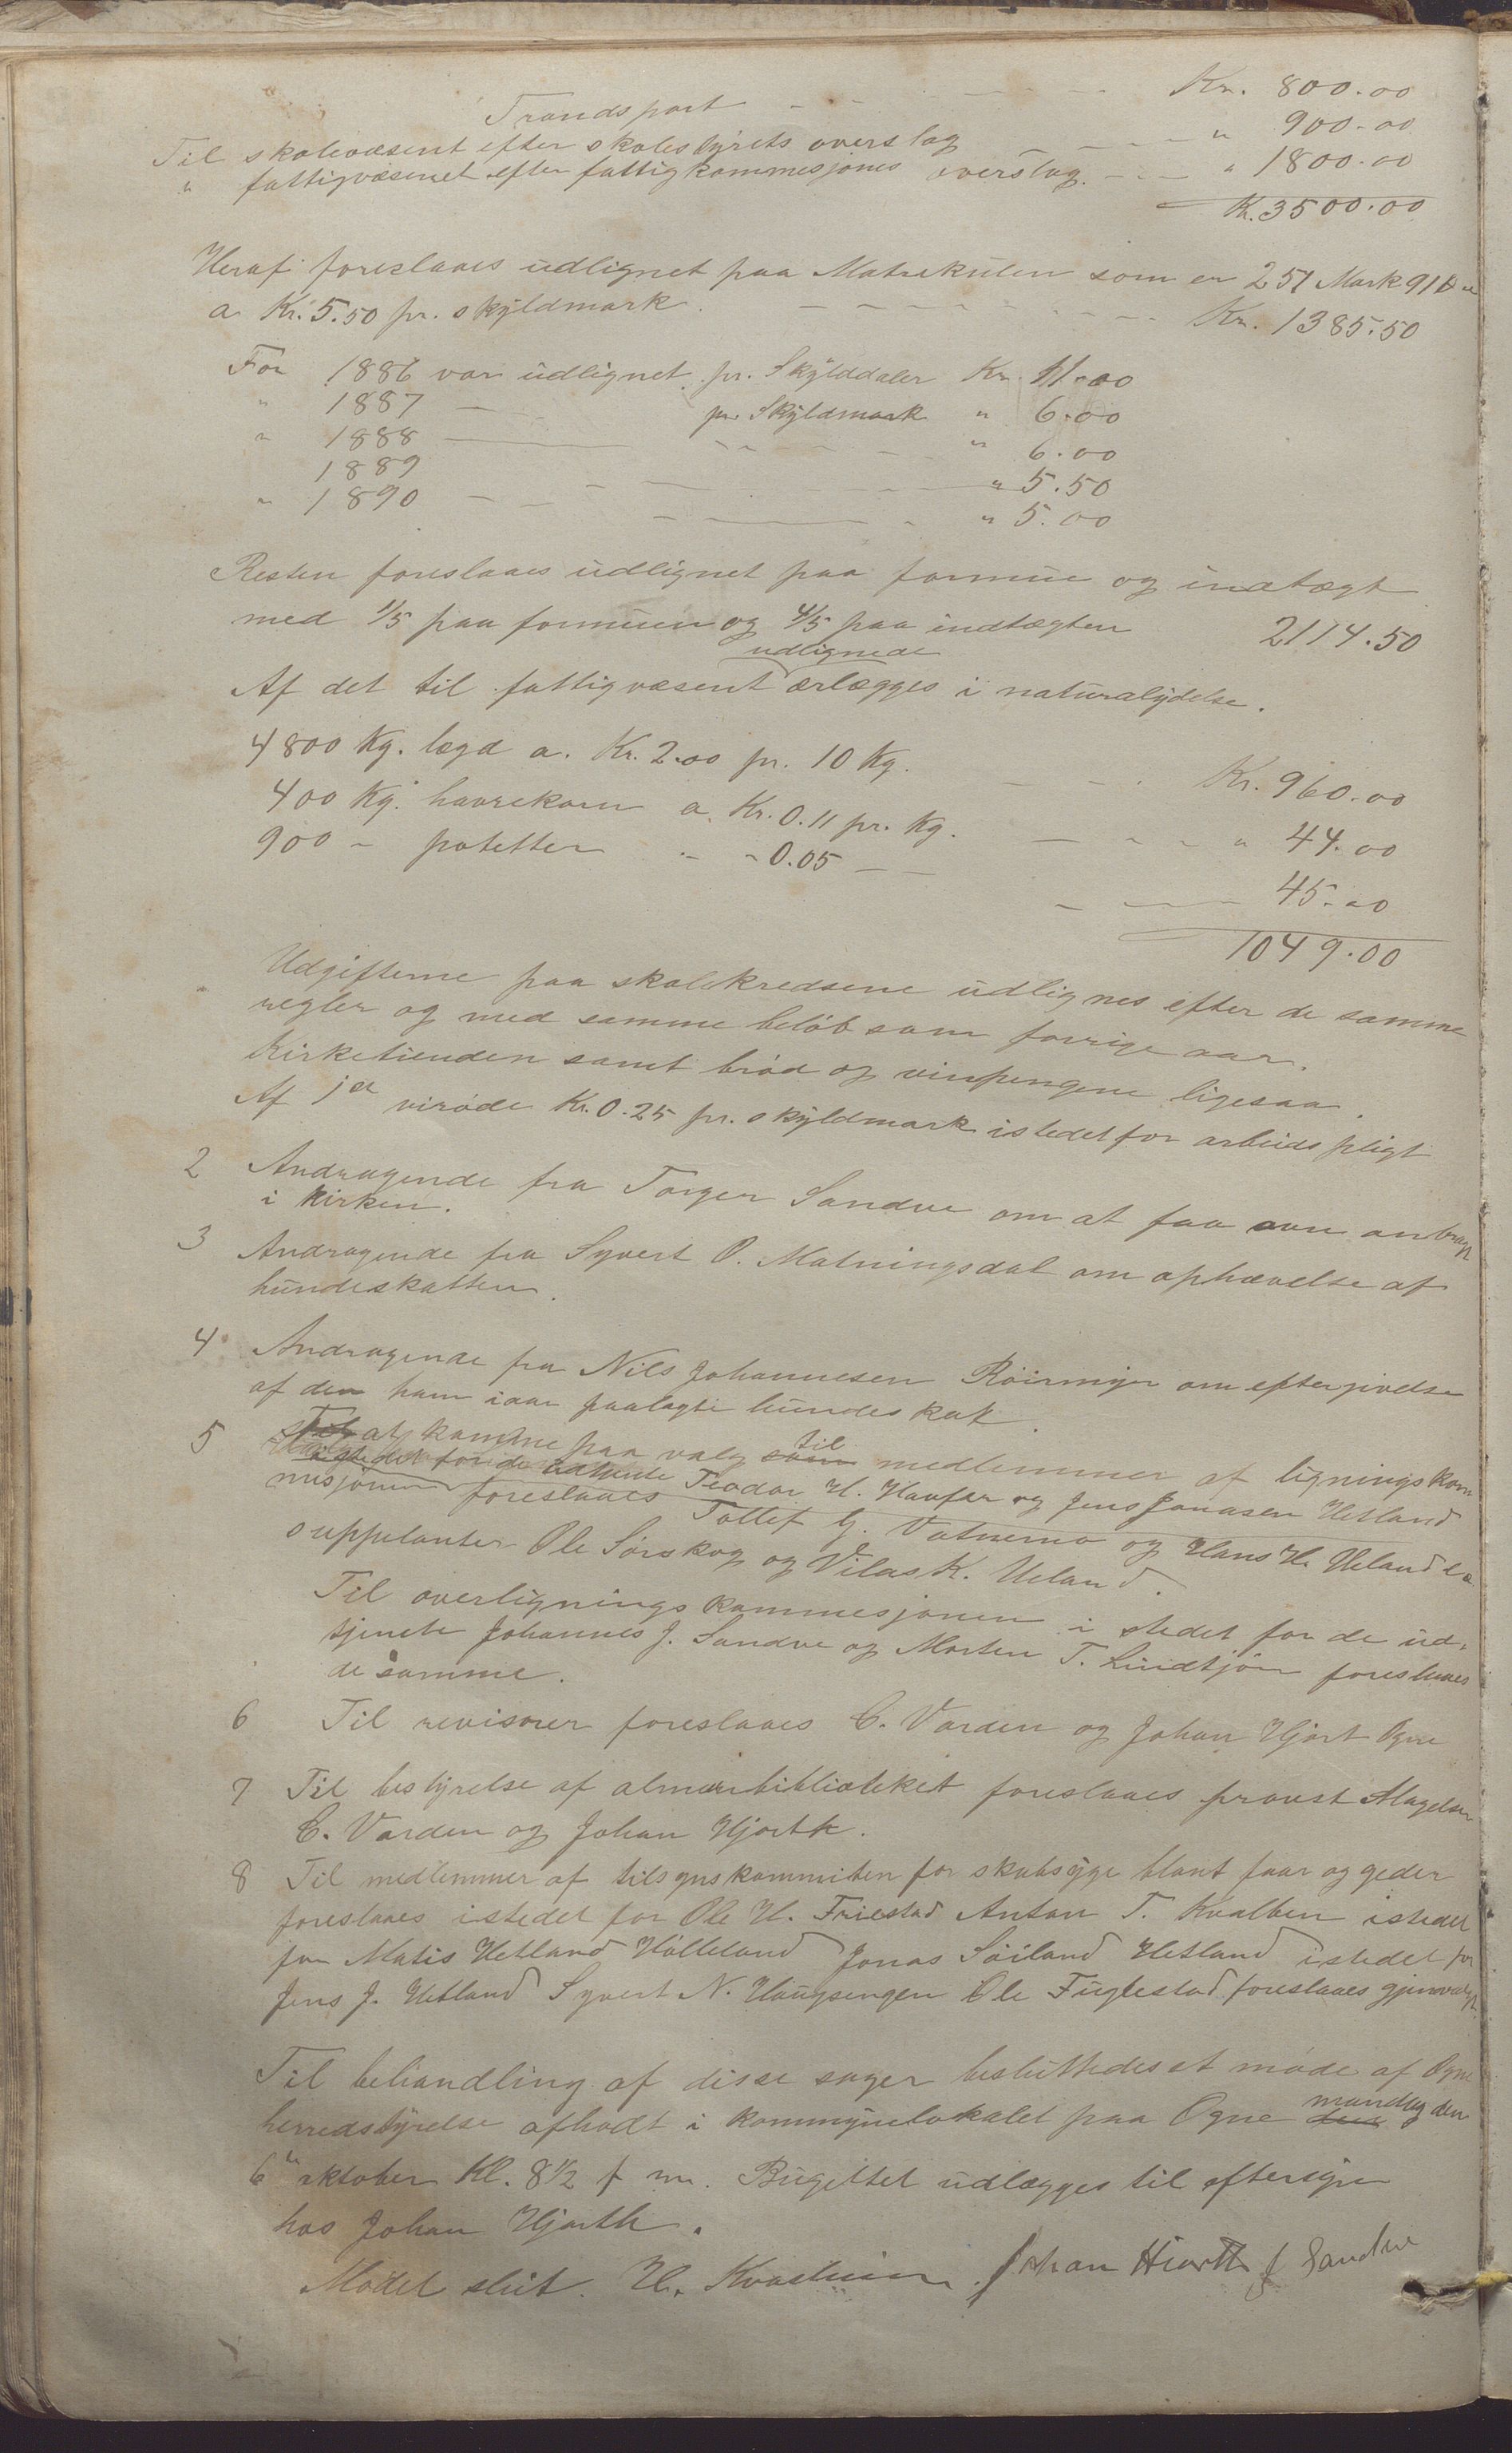 Trandsport - - - - - - Kr. 800.00
Til skolevæsent efter skolestyrets overslag - - - " 900.00
" fattigvæsenet efter fattigkommesjones overslag. - - - " 1800.00
K. 3500.00
Heraf foreslaaes udlignet paa Matrekulen som er 251 Mark 91
a Kr. 5.50 pr. skyldmark. - - - - - - Kr. 1385.50
For 1886 var udlignet pr. Skylddaler Kr. 11.00
" 1887 — pr. Skyldmark " 6.00
" 1888 — - - - - " 6.00
1889 - - - " 5.50
" 1890 - - - - - " 5.00
Resten foreslaaes udlignet paa formue og indtægt
med 1/5 paa formuen og 4/5 paa indtægten 2114.50
udlignede
Af det til fattigvæsent ærlægges i naturalydelse.
4800 Kg. lægd a. Kr. 2.00 pr. 10 Kg. - - - Kr. 960.00
400 Kg. havrekorn a. Kr. 0.11 pr. Kg. - - - " 44.00
900 - potetter - - 0.05 - - - - - 45.00
1049.00
Udgifterne paa skolekredsene udlignes efter de samme
regler og med samme beløb som forrige aar.
Kirketienden samt brød og vinpengene ligesaa.
Af jor virøde Kr. 0.25 pr. skyldmark istedet for arbeidspligt
2 Andragende fra Torger Sandve om at faa ovn anbragt
i kirken.
3 Andragende fra Syvert O. Matningsdal om ophævelse af
hundeskatten.
4 Andragende fra Nils Johannesen Röirmyr om eftergivelse
af den ham iaar paalagte hundeskat
5 Til at komme paa valg som til medlemmer af ligningskom
istedet for de udtjente Teodor H. Haufar og Jens Jonasen Hetland
misjonen foreslaaes Tollef G. Vatnemo og Hans H. Ueland
suppelanter Ole Sørskog og Vilas K. Ueland.
Til overligningskommesjonen i stedet for de ud-
tjente Johannes J. Sandve og Morten T. Lindtjön foreslaaes
de samme.
6 Til revisorer foreslaaes C. Varden og Johan Hjort Ogne
7 Til bestyrelse af almuebiblioteket foreslaaes provst Magelsen
C. Varden og Johan Hjorth.
8 Til medlemmer af tilsynskommiten for skabsyge blant faar og geder
foreslaaes istedet for Ole H. Friestad Anton T. Kvalben istedet
for Matis Hetland Hölleland Jonas Söiland Hetland istedet for
Jens J. Hetland Syvert N. Haugsengen Ole Fuglestad foreslaaes gjenvalgt.
Til behandling af disse sager besluttedes at møde af Ogne
herredstyrelse afholdt i kommynelokalet paa Ogne den mandag den
6te oktober Kl. 8 1/2 f m. Bugettet udlægges til eftersyn
hos Johan Hjorth.
Mødet slut. H. Kvasheim Johan Hiorth J Sandve